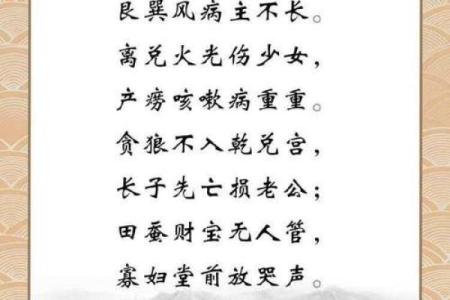 艮巽风病主不长。
离兑火光伤少女，
产痨咳嗽病重重。
贪狼不入乾兑宫，
长子先亡损老公；
田蚕财宝无人管，
寡妇堂前放哭声。